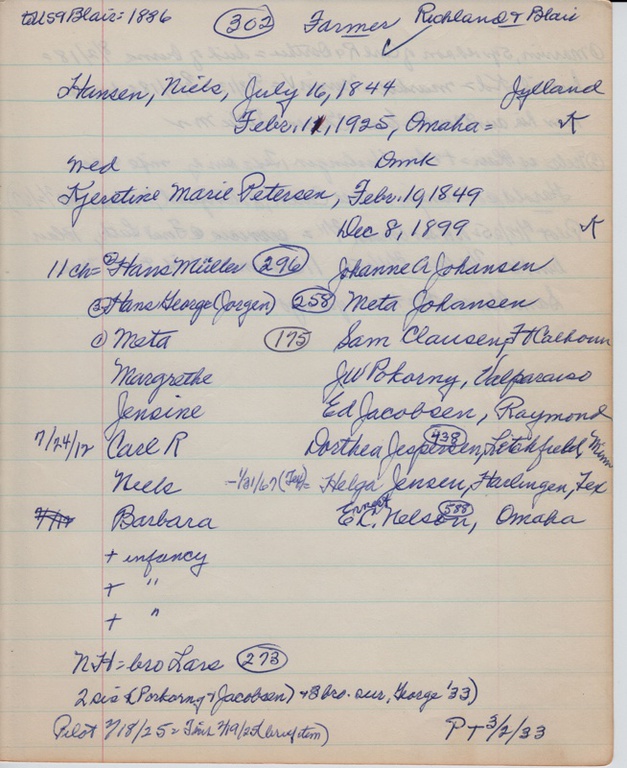 to US 9 Blair = 1886 (302) Farmer Richland & Blair
✓
Hansen, Niels, July 16, 1844 Jylland
Febr. 11, 1925, Omaha = K
med Dmk
Kjerstine Marie Petersen, Febr. 10, 1849
Dec 8, 1899 K
11 ch = (2) Hans Müller (296) Johanne A Johansen
(3) Hans George (Jorgen) (258) Meta Johansen
(1) Meta (175) Sam Clausen, Ft Calhoun
Margrethe JW Pokorny, Valparaiso
Jensine Ed Jacobsen, Raymond
7/24/12 Carl R Dorthea Jespersen, (438) Litchfield, Minn
Niels - 1/31/67 (Tex) = Helga Jensen, Harlingen, Tex
Barbara E R. Nelson, (588) Omaha
Ernest
+ infancy
+ "
+ "
NH = bro Lars (273)
2 sis (Porkorny & Jacobsen) + 3 bro. sur, George '33)
Pilot 2/18/25 = 2/19/25 (brief item) PT 3/2/33